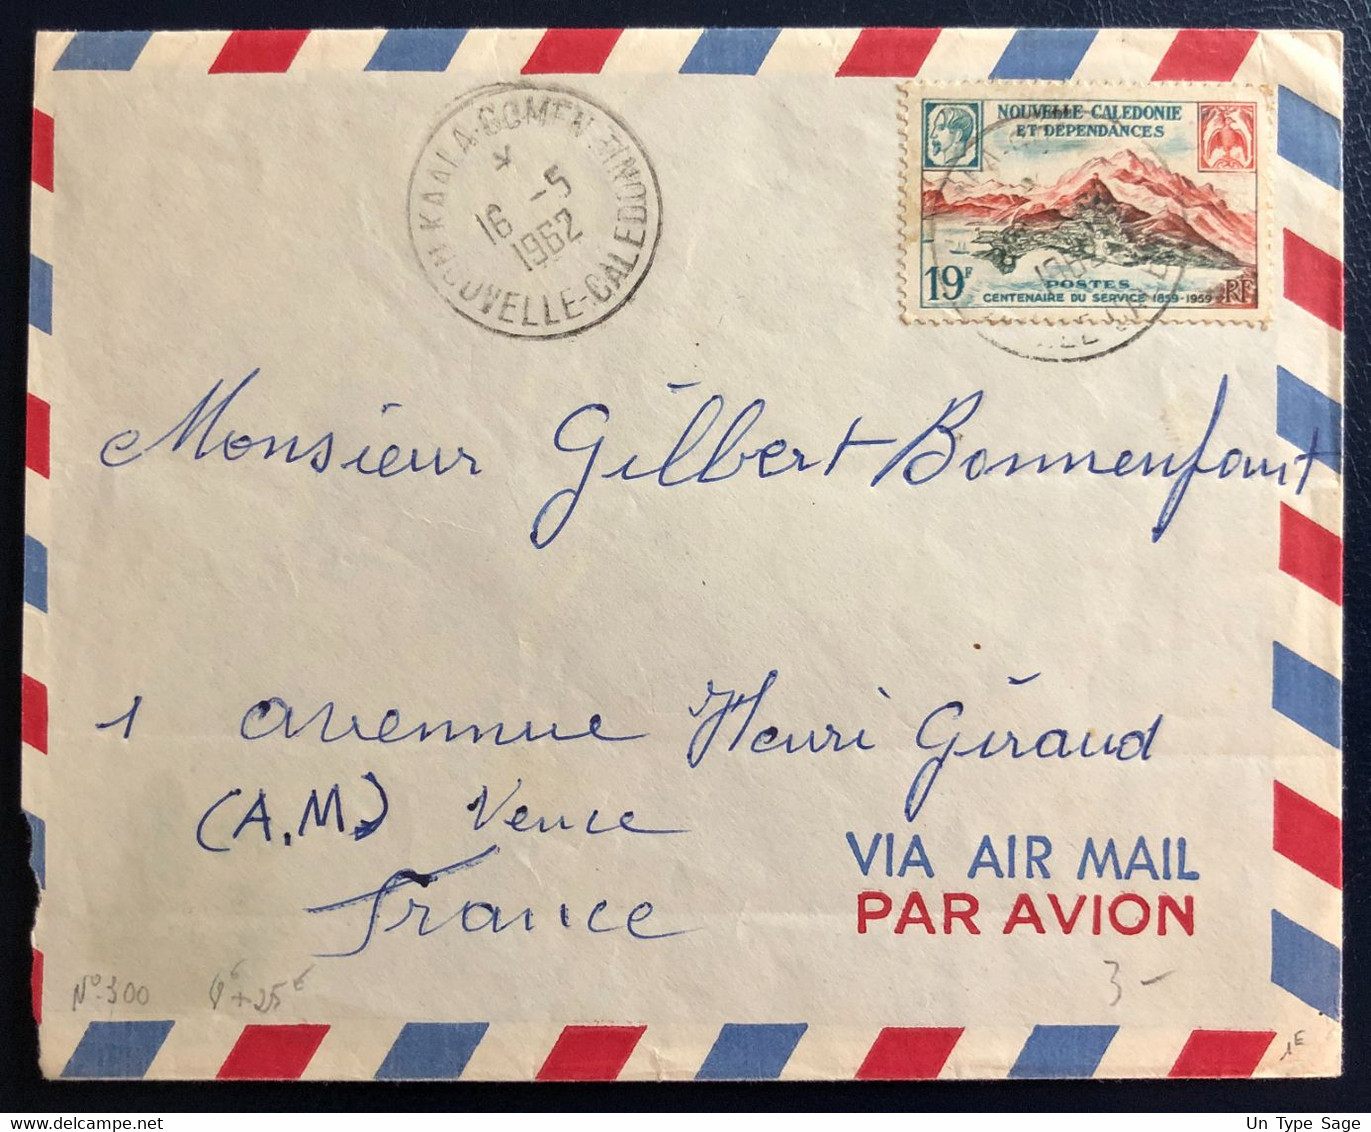 KAALA-GOMEN-TINOUNE
16 -5
1962
NOUVELLE-CALEDONIE
NOUVELLE-CALEDONIE
ET DEPENDANCES
19F
POSTES
CENTENAIRE DU SERVICE 1859-1959
RF
Monsieur Gilbert Bonnenfant
1 avennue Henri Giraud
(A.M.) Vence
France
VIA AIR MAIL
PAR AVION
N° 300
3 -
1E
Un Type Sage